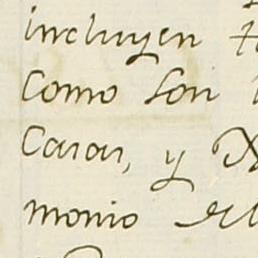 incluyen
Como son
Casas, y
monio el